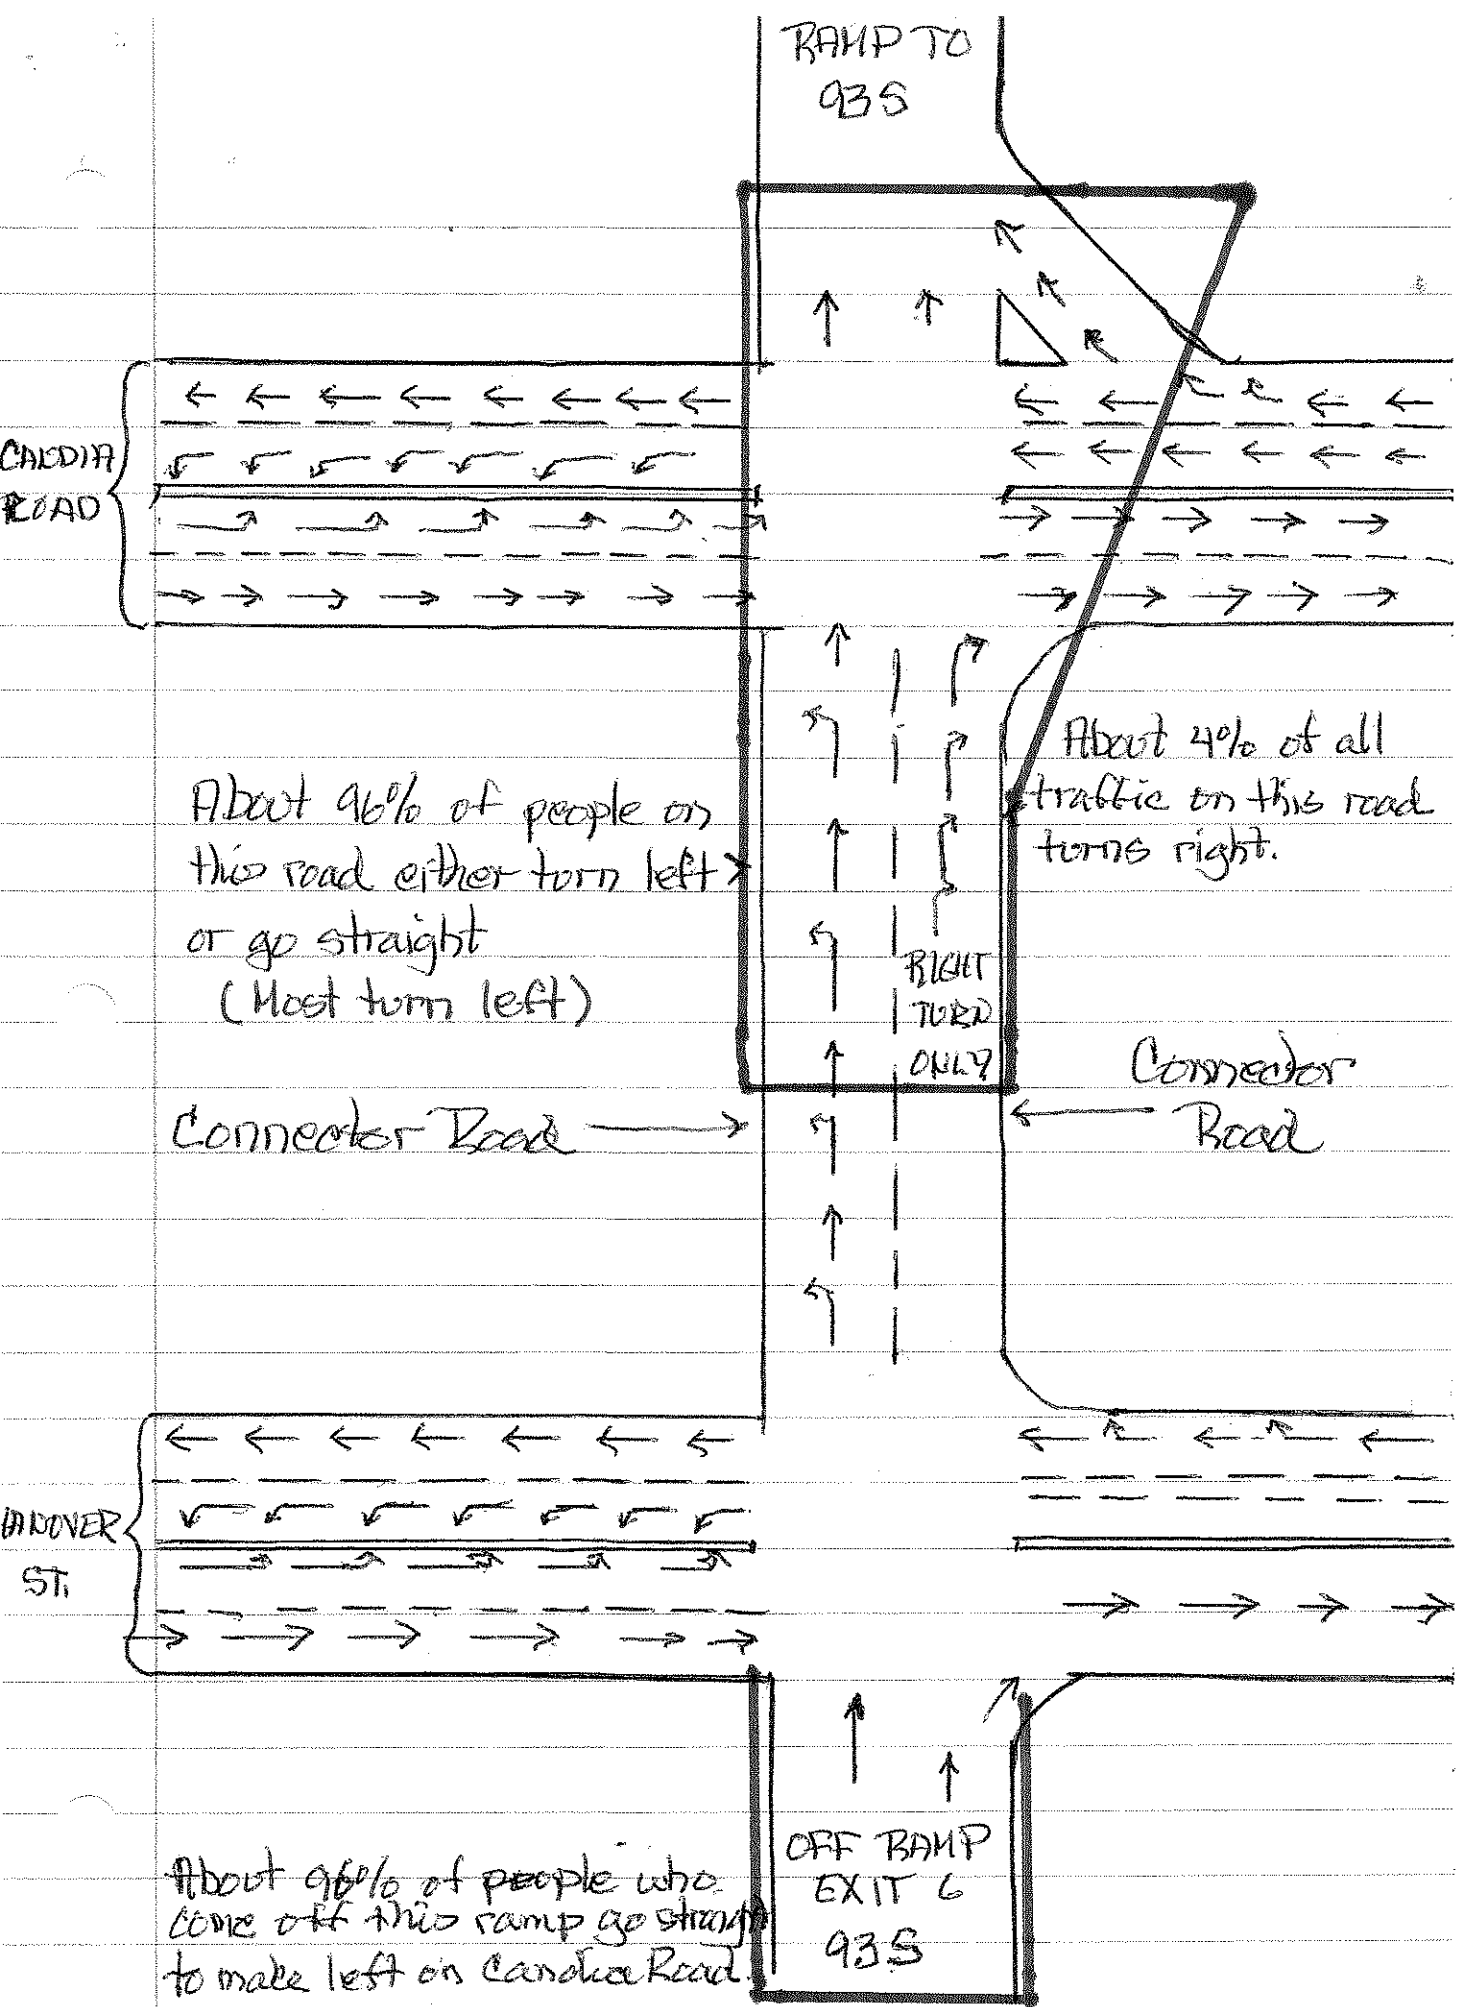 RAMP TO
93S
CANDIA
ROAD
About 96% of people on
this road either turn left >
or go straight
(Most turn left)
About 4% of all
traffic on this road
turns right.
RIGHT
TURN
ONLY
Connector Road
Connector
Road
HANOVER
ST.
OFF RAMP
EXIT 6
93S
About 96% of people who
come off this ramp go straight
to make left on Candia Road.